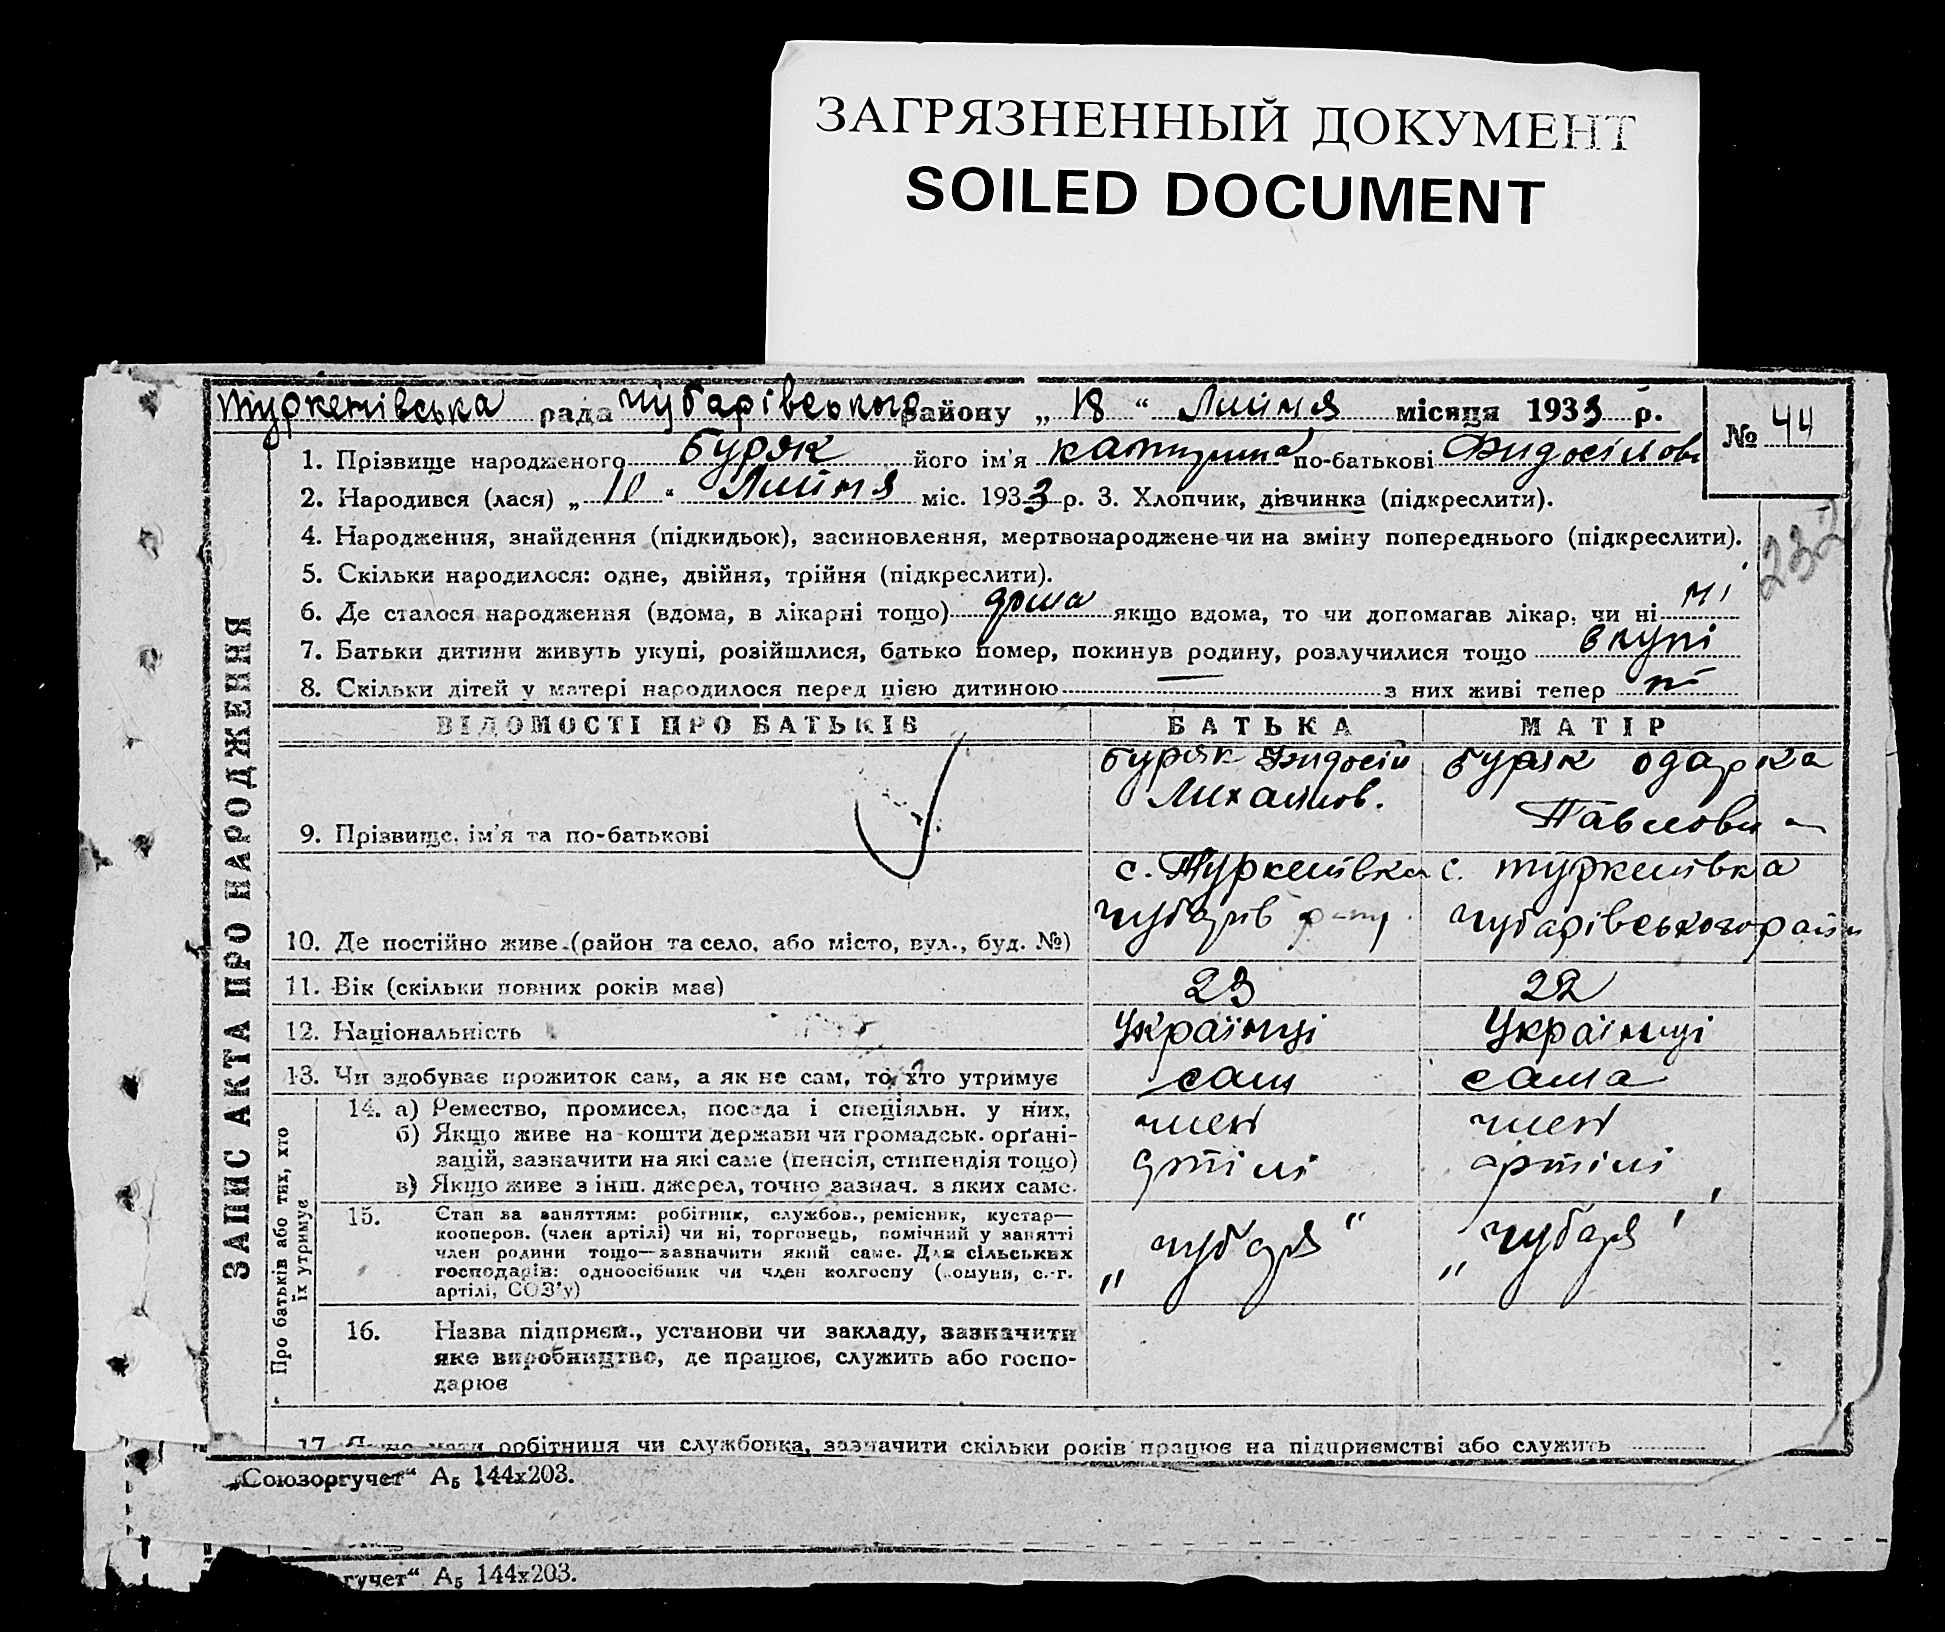 ЗАГРЯЗНЕННЫЙ ДОКУМЕНТ
SOILED DOCUMENT
Туркенівська рада Чубарівського району „ 18 “ Липня місяця 1933 р.
№ 44
1. Прізвище народженого Буряк його ім'я по-батькові
2. Народився (лася) „ 10 “ Липня міс. 1933 р. 3. Хлопчик, дівчинка (підкреслити).
4. Народження, знайдення (підкидьок), засиновлення, мертвонароджене чи на зміну попереднього (підкреслити).
232
5. Скільки народилося: одне, двійня, трійня (підкреслити).
6. Де сталося народження (вдома, в лікарні тощо) дома якщо вдома, то чи допомагав лікар, чи ні ні
7. Батьки дитини живуть укупі, розійшлися, батько помер, покинув родину, розлучилися тощо вкупі
8. Скільки дітей у матері народилося перед цією дитиною — з них живі тепер
ЗАПИС АКТА ПРО НАРОДЖЕННЯ
ВІДОМОСТІ ПРО БАТЬКІВ БАТЬКА МАТІР
Буряк Буряк Одарка
Михайлов. Павловна
9. Прізвище, ім'я та по-батькові
с. Туркенівка с. Туркенівка
Чубарів Чубарівського район
10. Де постійно живе (район та село, або місто, вул., буд. №)
11. Вік (скільки повних років має) 23 22
12. Національність Українці Українці
13. Чи здобуває прожиток сам, а як не сам, то хто утримує сам сама
Про батьків або тих, хто їх утримує
14. а) Ремество, промисел, посада і спеціяльн. у них. член член
б) Якщо живе на кошти держави чи громадськ. орґані-
зацій, зазначити на які саме (пенсія, стипендія тощо) артілі артілі
в) Якщо живе з інш. джерел, точно зазнач. з яких саме.
15. Стан за заняттям: робітник, службов., ремісник, кустар—
кооперов. (член артілі) чи ні, торговець, помічний у занятті
член родини тощо—зазначити який саме. Для сільських „Чубаря“ „Чубаря“
господарів: одноосібник чи член колгоспу (комуни, с.-г.
артілі, СОЗ'у)
16. Назва підприєм., установи чи закладу, зазначити
яке виробництво, де працює, служить або госпо-
дарює
17. Якщо мати робітниця чи службовка, зазначити скільки років працює на підприємстві або служить
„Союзоргучет“ А5 144х203.
гучет“ А5 144х203.